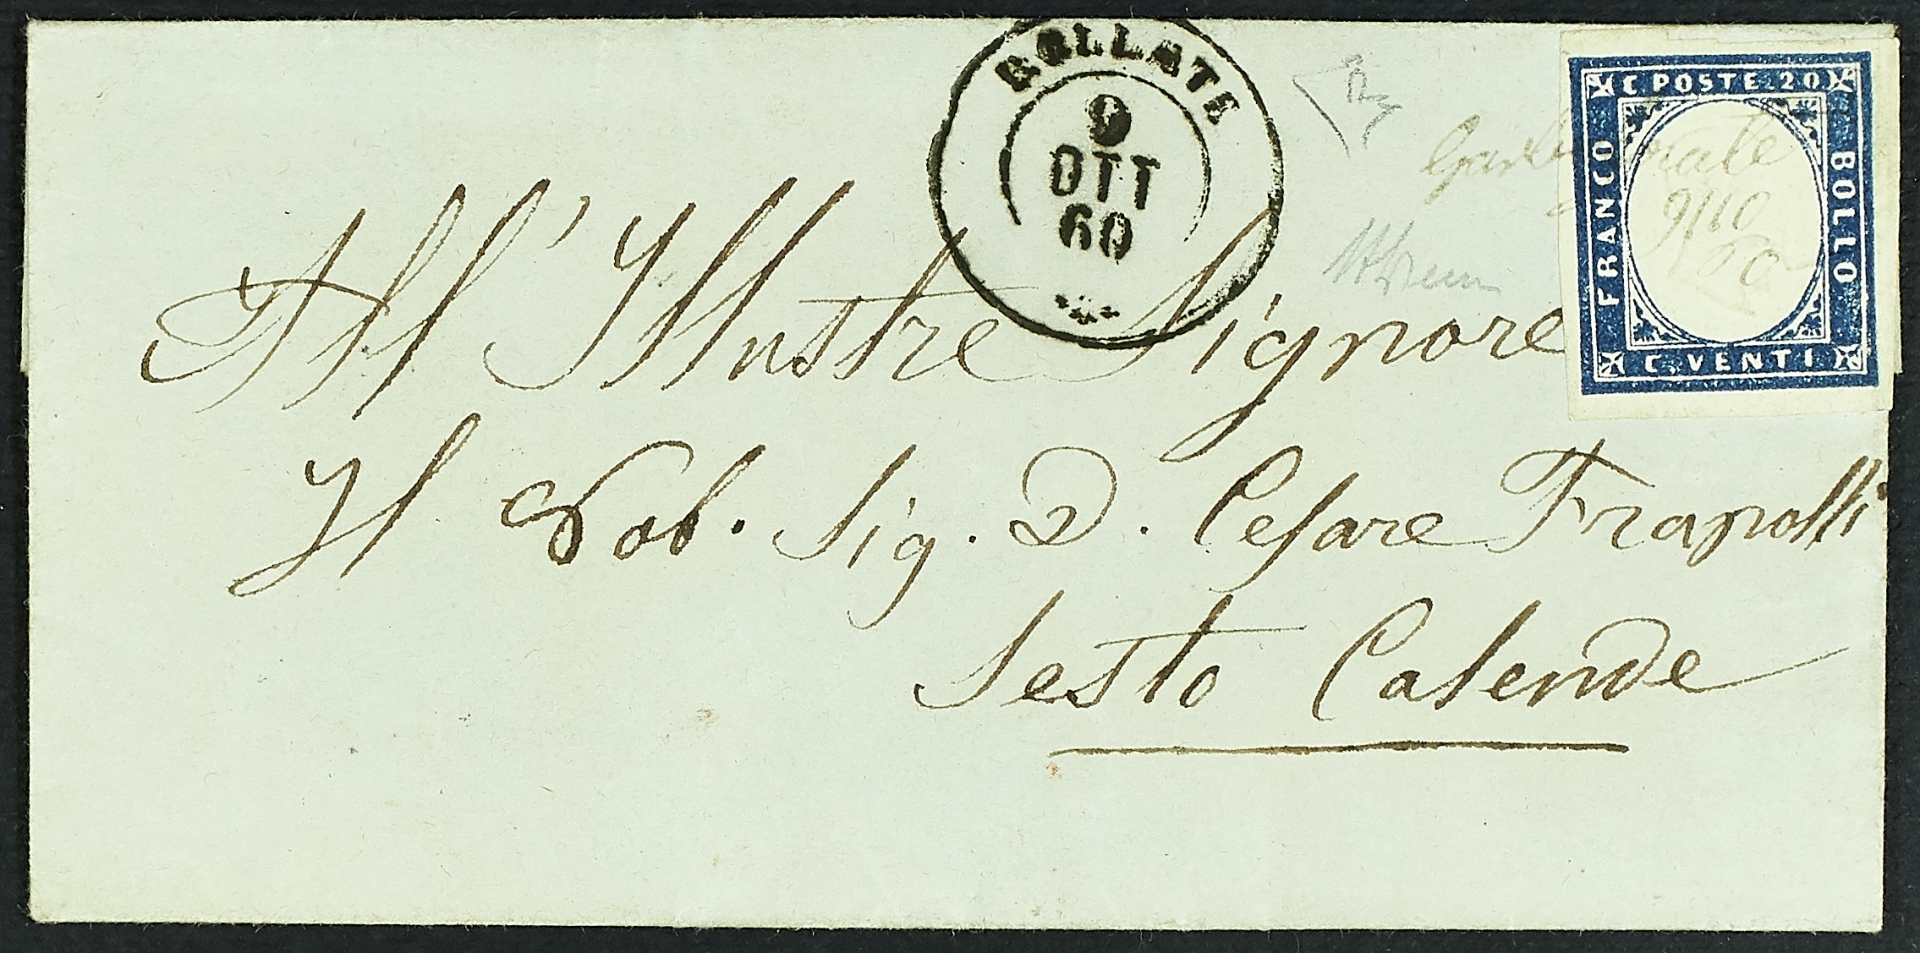 BOLLATE
9
OTT
60
C. POSTE. 20
FRANCO
BOLLO
C. VENTI.
9/10
60
All' Illustre Signore
Il Nob. Sig. D. Cesare Frapolli
Sesto Calende